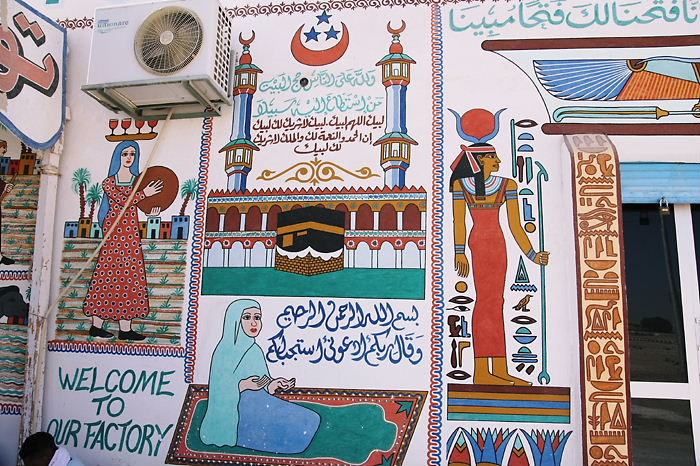 unionaire
نا فتحنا لك فتحا مبينا
ولله على الناس حج البيت
من استطاع اليه سبيلا
لبيك اللهم لبيك لبيك لاشريك لك لبيك
ان الحمد والنعمة لك والملك لاشريك
لك لبيك
بسم الله الرحمن الرحيم
وقال ربكم الادعونى استجب لكم
WELCOME
TO
OUR FACTORY